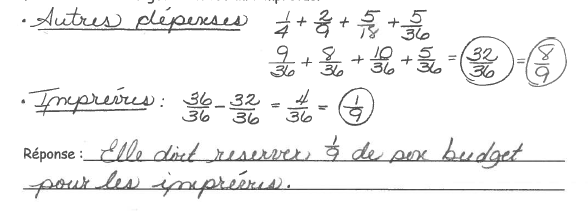 • Autres dépenses 1/4 + 2/9 + 5/18 + 5/36
9/36 + 8/36 + 10/36 + 5/36 = 32/36 = 8/9
• Imprévus : 36/36 - 32/36 = 4/36 = 1/9
Réponse : Elle doit reserver 1/9 de son budget
pour les imprévus.